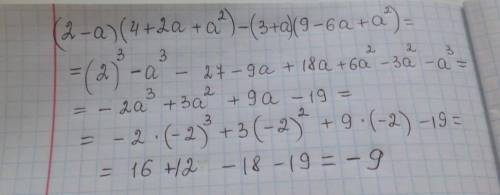 (2-a)(4+2a+a²)-(3+a)(9-6a+a²)=
=(2)³-a³-27-9a+18a+6a²-3a²-a³=
=-2a³+3a²+9a-19=
=-2·(-2)³+3(-2)²+9·(-2)-19=
=16+12-18-19=-9